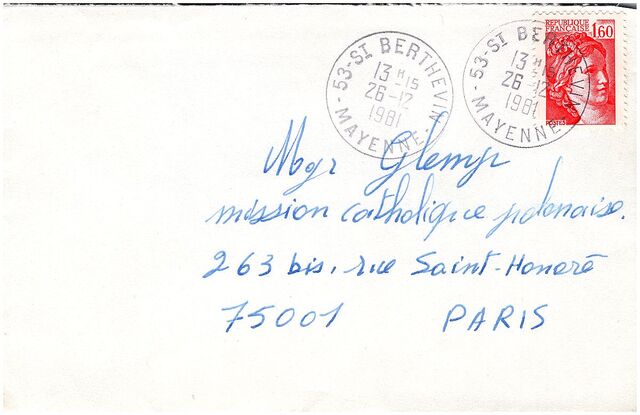 53-ST BERTHEVIN
13 H 15
26-12
1981
MAYENNE
53-ST BERTHEVIN
13 H 15
26-12
1981
MAYENNE
REPUBLIQUE
FRANCAISE 1,60
POSTES
Mgr Glemp
mission catholique polonaise.
263 bis, rue Saint-Honoré
75001 PARIS